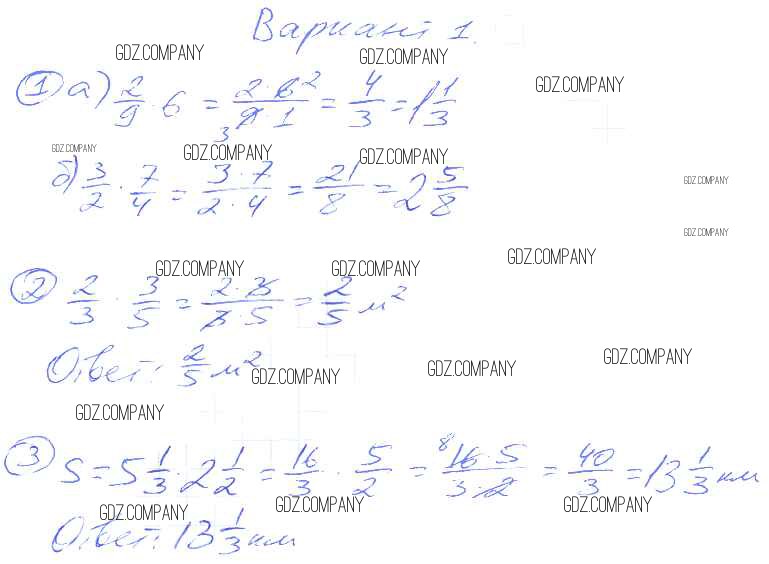 Вариант 1.
GDZ.COMPANY GDZ.COMPANY GDZ.COMPANY
① а) 2/9 · 6 = 2·6²/₃9·1 = 4/3 = 1 1/3
GDZ.COMPANY GDZ.COMPANY GDZ.COMPANY
б) 3/2 · 7/4 = 3·7/2·4 = 21/8 = 2 5/8
GDZ.COMPANY
GDZ.COMPANY
GDZ.COMPANY GDZ.COMPANY GDZ.COMPANY
② 2/3 · 3/5 = 2·3/3·5 = 2/5 м²
Ответ: 2/5 м²
GDZ.COMPANY GDZ.COMPANY GDZ.COMPANY
GDZ.COMPANY
③ S = 5 1/3 · 2 1/2 = 16/3 · 5/2 = ⁸16·5/3·2 = 40/3 = 13 1/3 км
GDZ.COMPANY GDZ.COMPANY GDZ.COMPANY
Ответ: 13 1/3 км